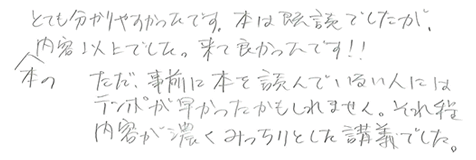 とても分かりやすかったです。本は既読でしたが、
本の内容以上でした。来て良かったです!!
ただ、事前に本を読んでいない人には
テンポが早かったかもしれません。それ程
内容が濃くみっちりとした講義でした。